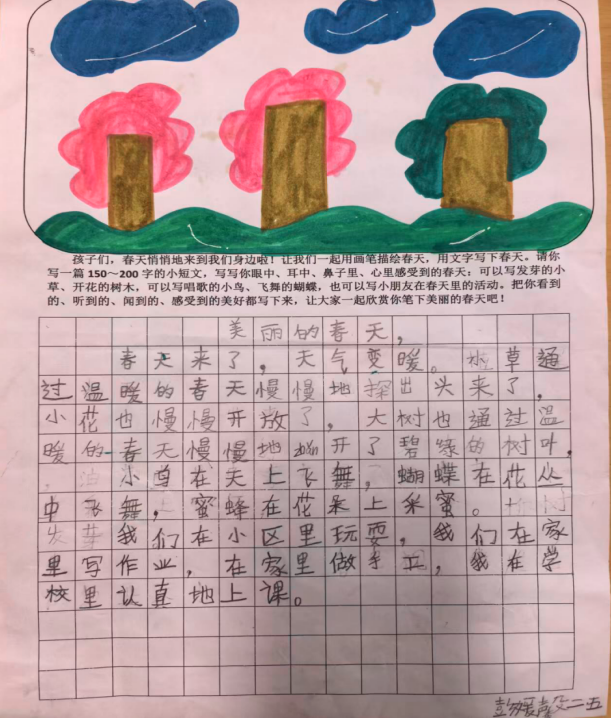 孩子们，春天悄悄地来到我们身边啦！让我们一起用画笔描绘春天，用文字写下春天。请你
写一篇 150～200 字的小短文，写写你眼中、耳中、鼻子里、心里感受到的春天：可以写发芽的小
草、开花的树木，可以写唱歌的小鸟、飞舞的蝴蝶，也可以写小朋友在春天里的活动。把你看到
的、听到的、闻到的、感受到的美好都写下来，让大家一起欣赏你笔下美丽的春天吧！
美丽的春天，
春天来了，天气变暖。草通
过温暖的春天慢慢地探出头来了，
小花也慢慢开放了，大树也通过温
暖的春天慢慢地开了碧绿的树叶，
小鸟在天上飞舞，蝴蝶在花丛
中飞舞，蜜蜂在花朵上采蜜。
我们在小区里玩耍，我们在家
里写作业，在家里做手工，我在学
校里认真地上课。
二五